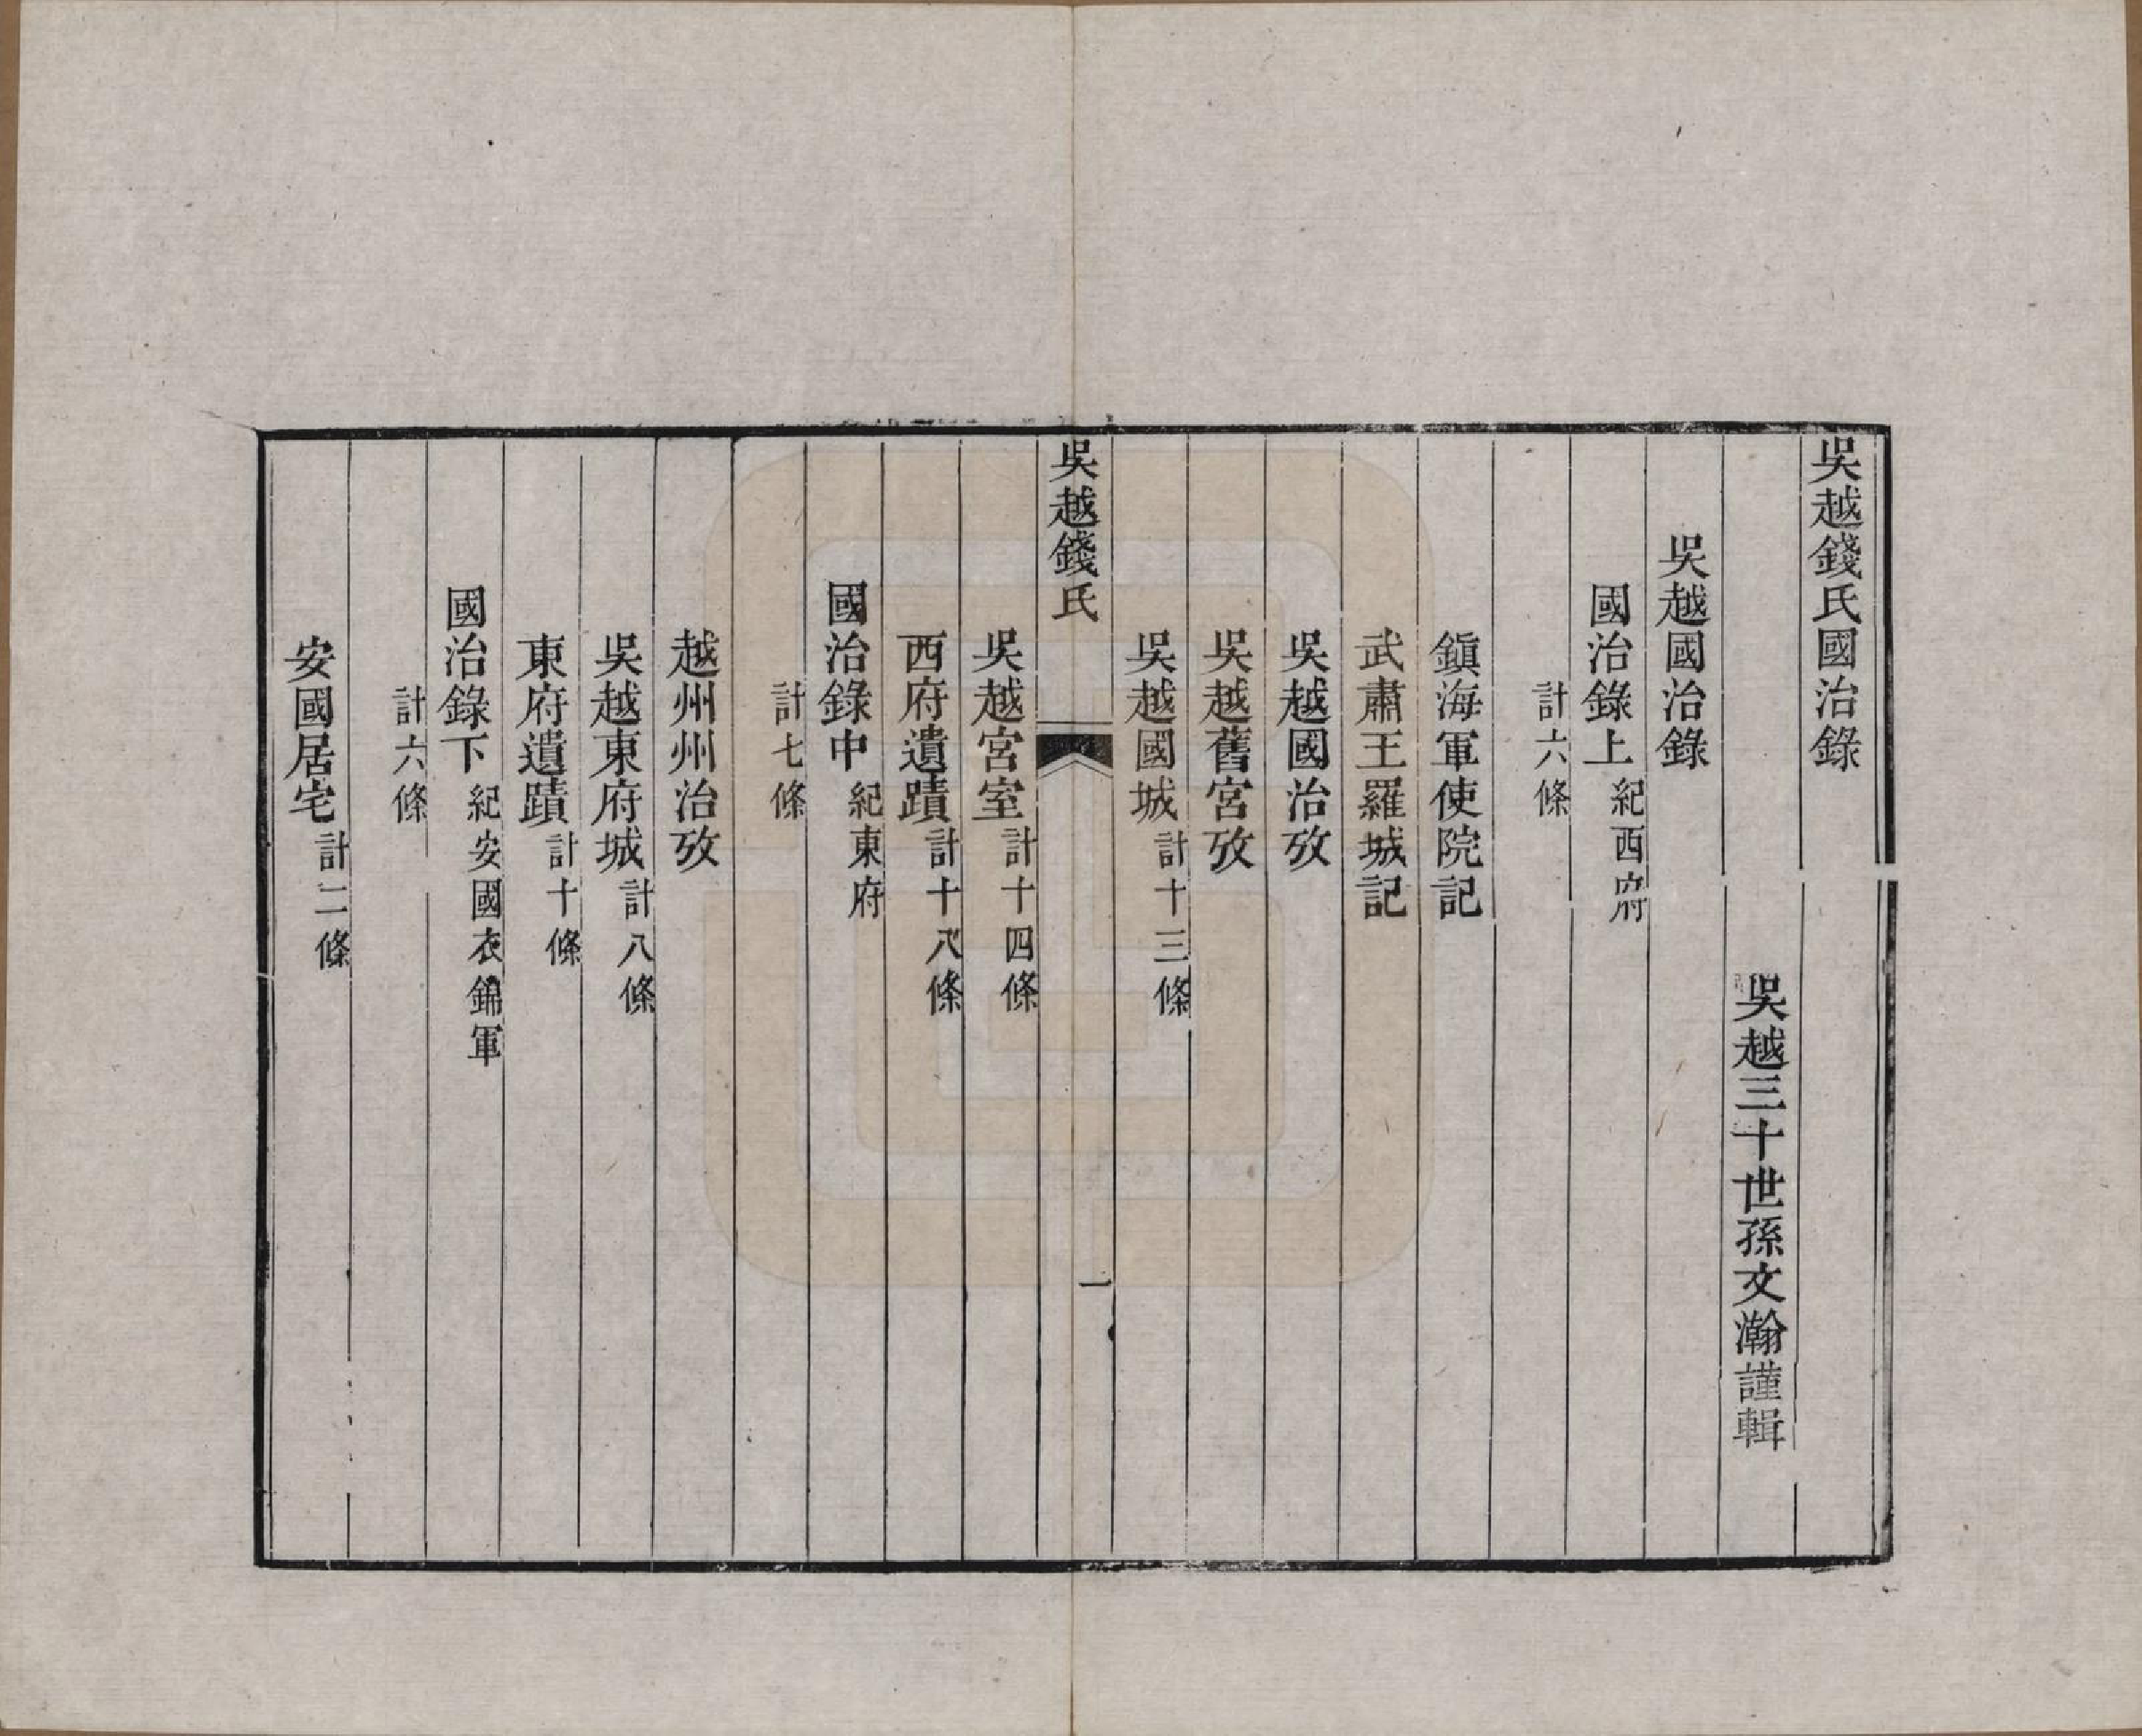 吳越錢氏國治錄
吳越三十世孫文瀚謹輯
吳越國治錄
國治錄上紀西府
計六條
鎭海軍使院記
武肅王羅城記
吳越國治攷
吳越舊宮攷
吳越國城計十三條
吳越錢氏
一
吳越宮室計十四條
西府遺蹟計十八條
國治錄中紀東府
計七條
越州州治攷
吳越東府城計八條
東府遺蹟計十條
國治錄下紀安國衣錦軍
計六條
安國居宅計二條